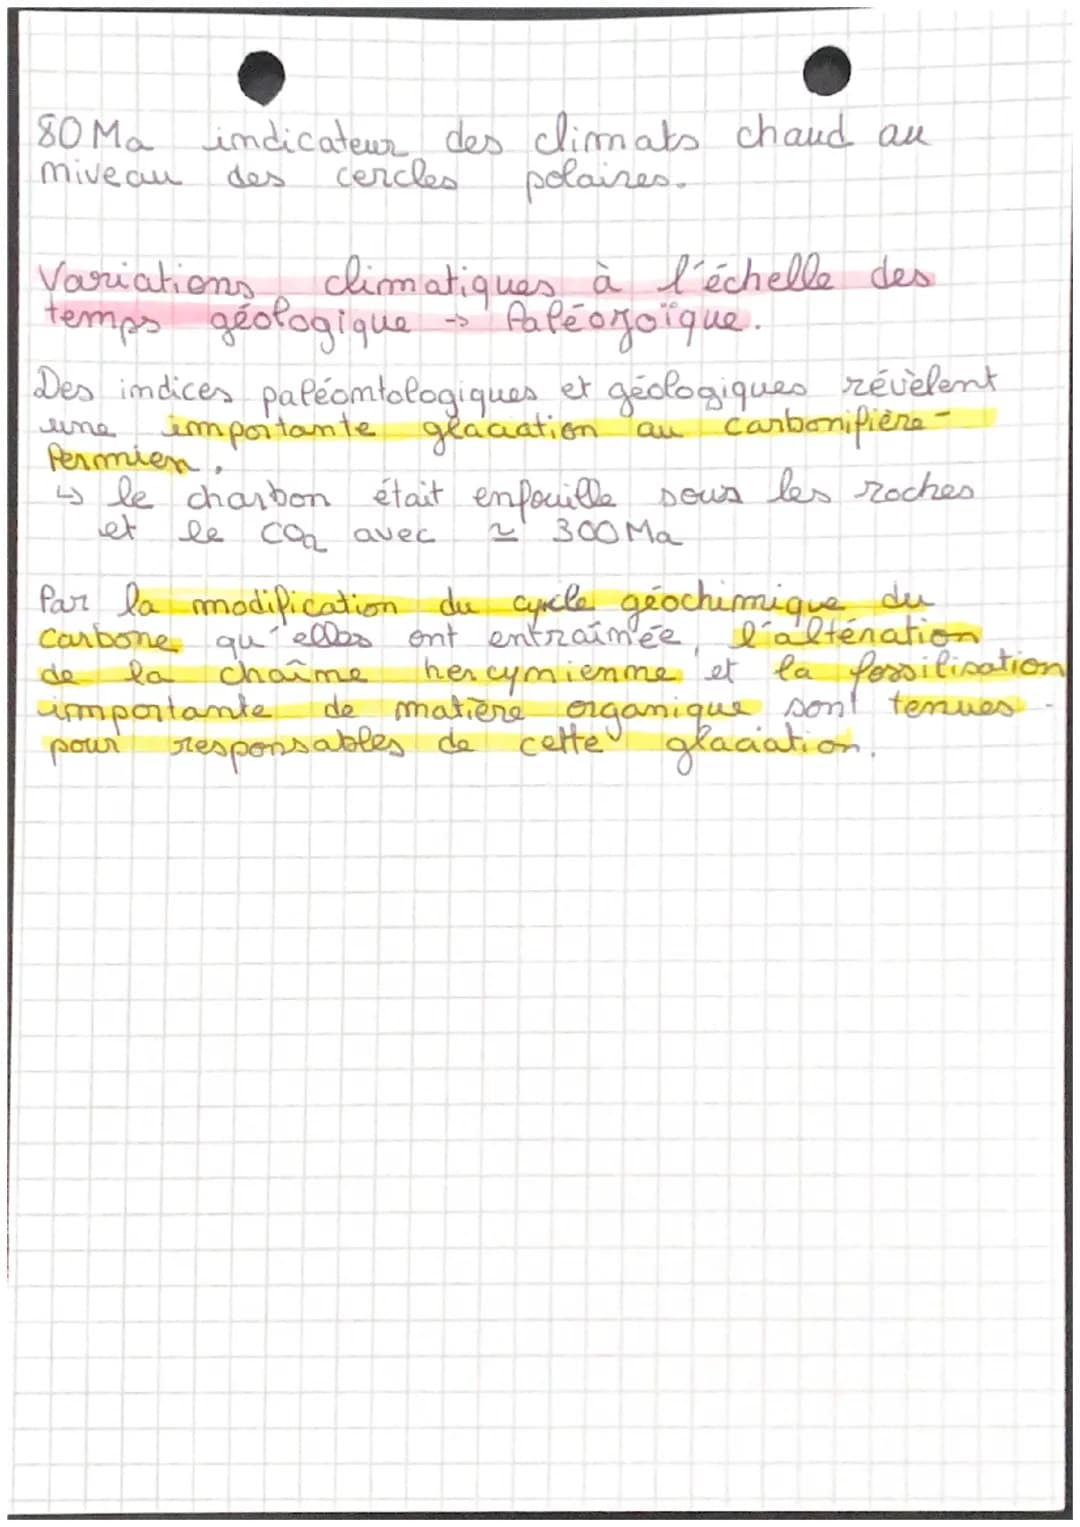 80 Ma indicateur des climats chaud au
niveau des cercles polaires.
Variations climatiques à l'échelle des
temps géologique -> Paléozoïque.
Des indices paléontologiques et géologiques révèlent
une importante glaciation au carbonifière-
Permien.
↳ le charbon était enfouille sous les roches
et le CO2 avec ≃ 300 Ma
Par la modification du cycle géochimique du
carbone qu'elles ont entraînée, l'altération
de la chaîne hercynienne et la fossilisation
importante de matière organique sont tenues
pour responsables de cette glaciation.